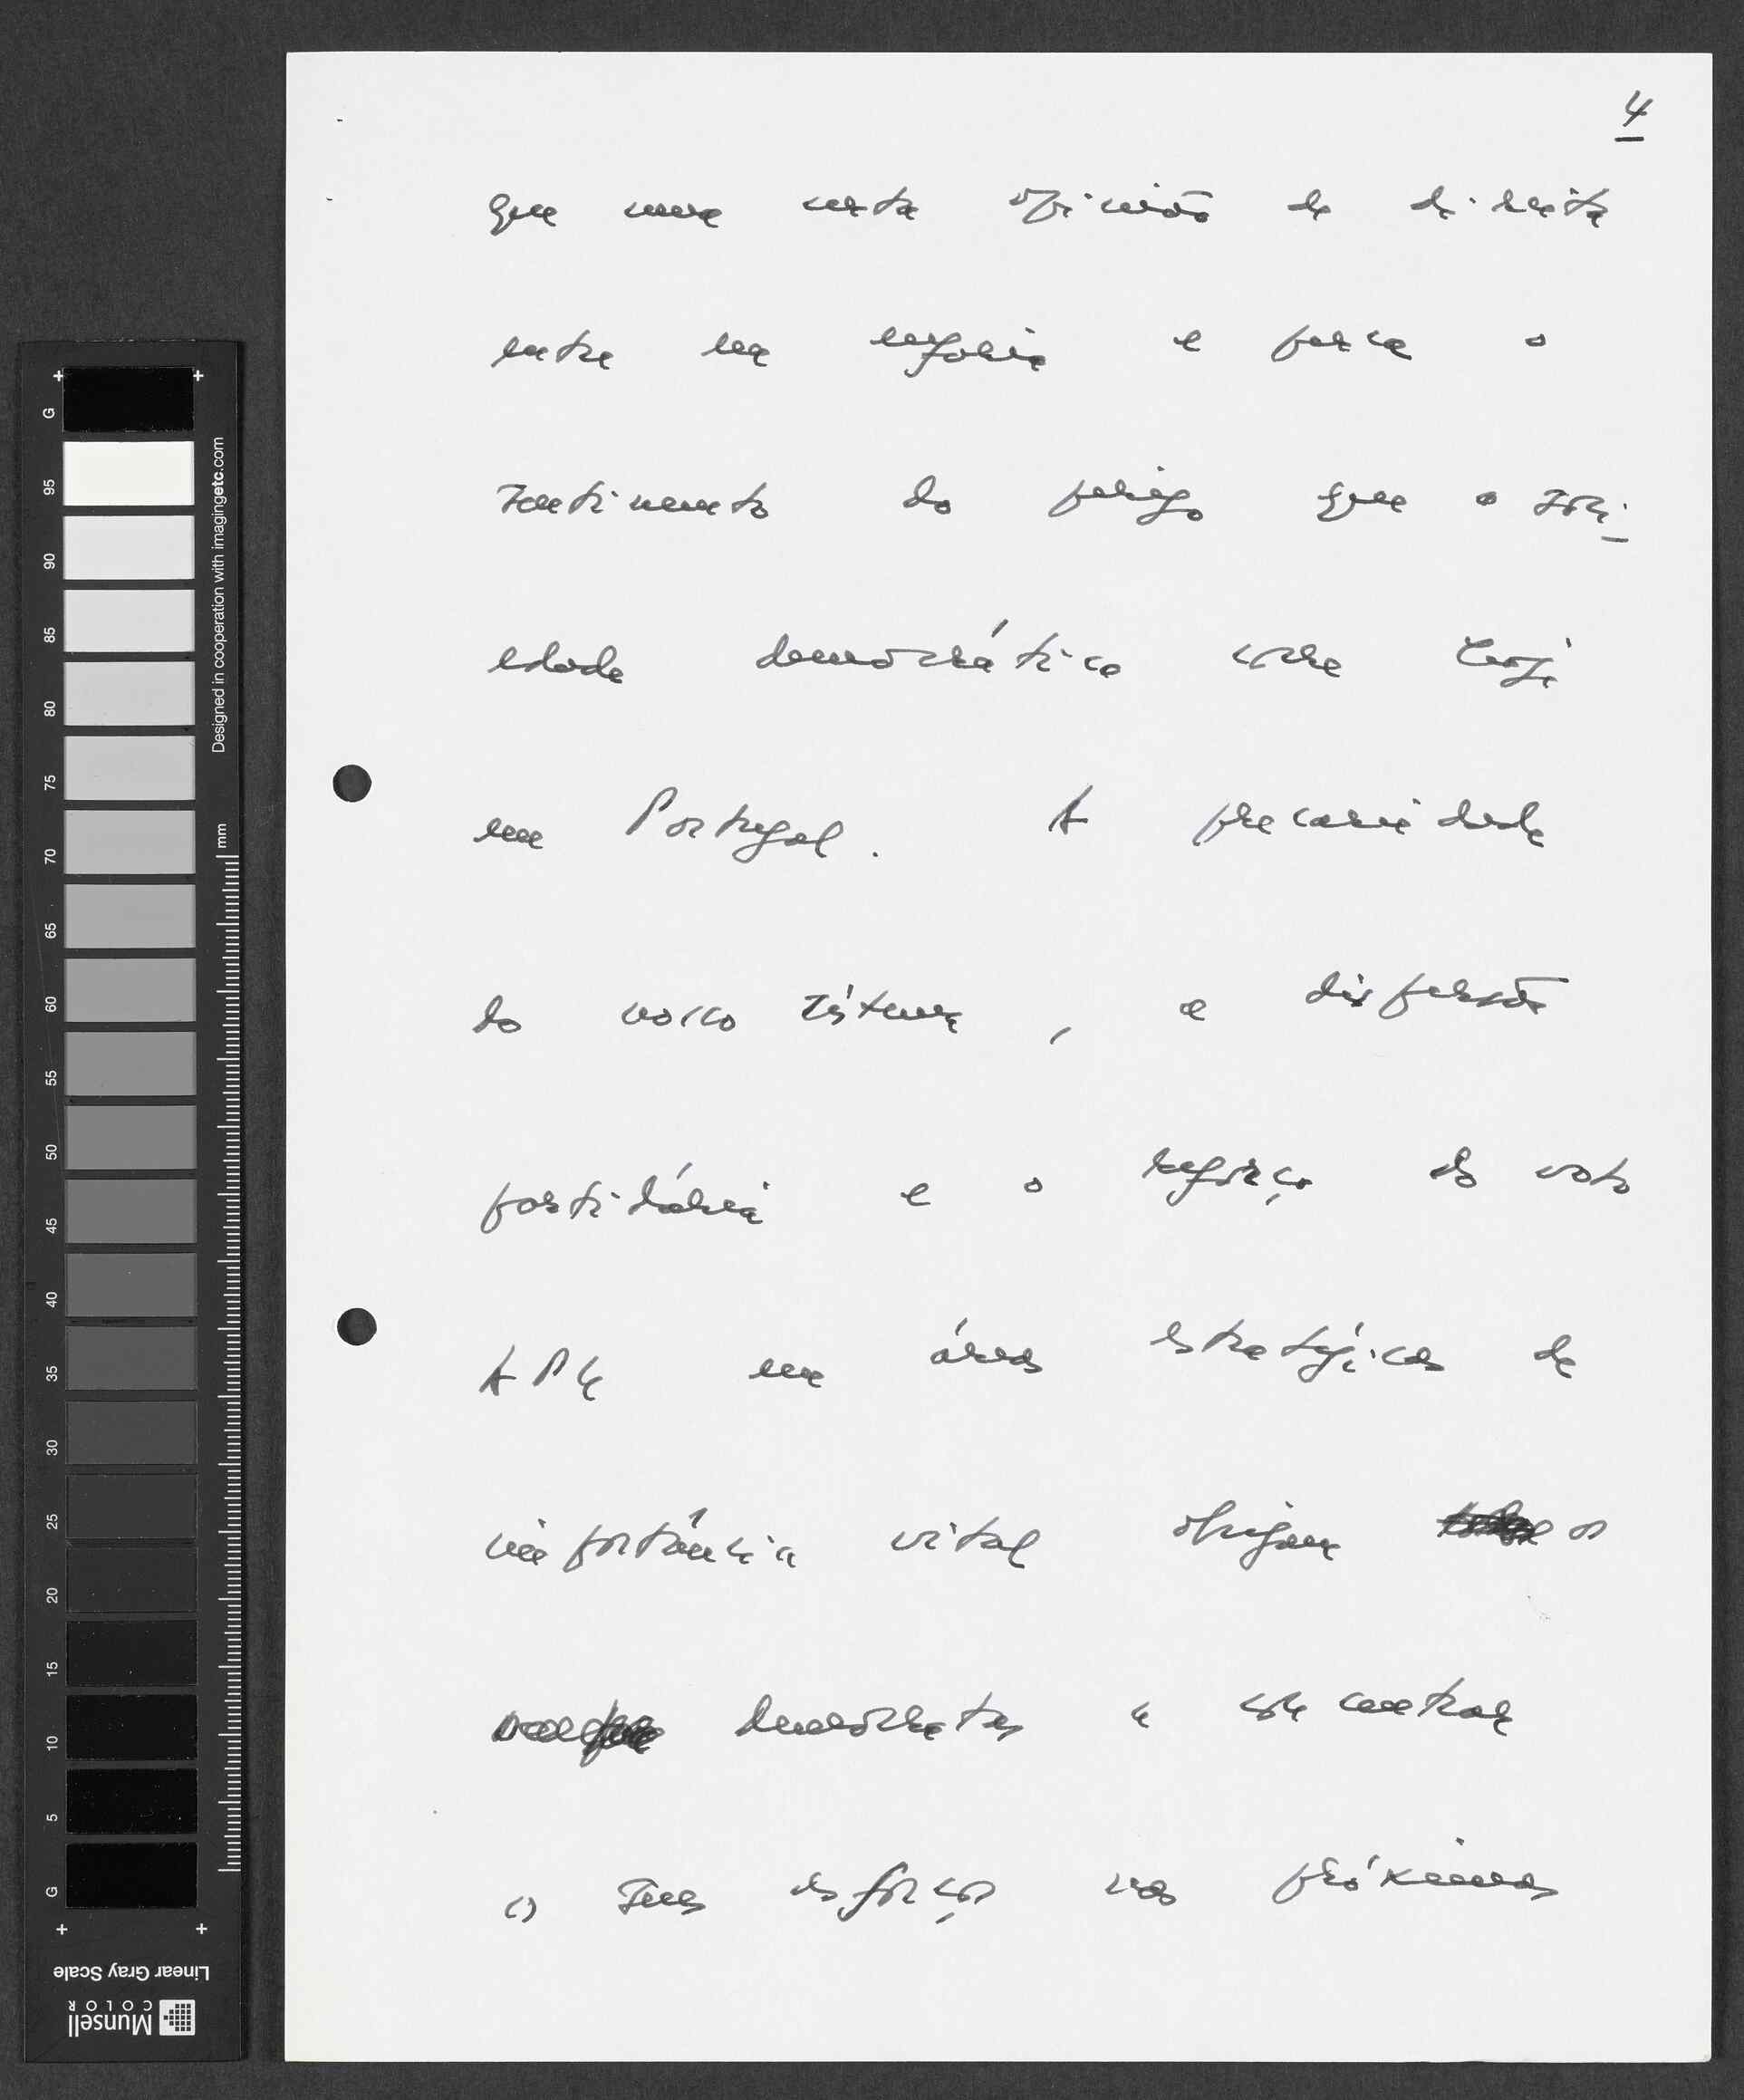 4
que uma certa opinião de direita
entre na euforia e perca o
sentimento do perigo que a soci-
edade democrática corre hoje
em Portugal. A precaridade
do nosso sistema, a dispersão
partidária e o reforço do voto
APU em áreas estratégicas de
importância vital obrigam os
democratas a concentrar
os seus esforços nos próximos
G 95 90 85 80 75 70 65 60 55 50 45 40 35 30 25 20 15 10 5 G
Designed in cooperation with imagingetc.com
mm
Linear Gray Scale
Munsell
COLOR